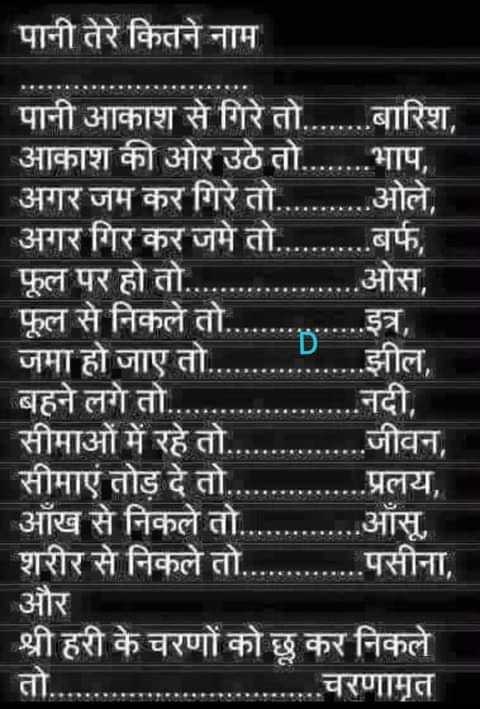 पानी तेरे कितने नाम
..........................
पानी आकाश से गिरे तो........बारिश,
आकाश की ओर उठे तो........भाप,
अगर जम कर गिरे तो...........ओले,
अगर गिर कर जमे तो...........बर्फ,
फूल पर हो तो....................ओस,
फूल से निकले तो................इत्र,
D
जमा हो जाए तो..................झील,
बहने लगे तो......................नदी,
सीमाओं में रहे तो................जीवन,
सीमाएं तोड़ दे तो................प्रलय,
आँख से निकले तो..............आँसू,
शरीर से निकले तो..............पसीना,
और
श्री हरी के चरणों को छू कर निकले
तो...............................चरणामृत